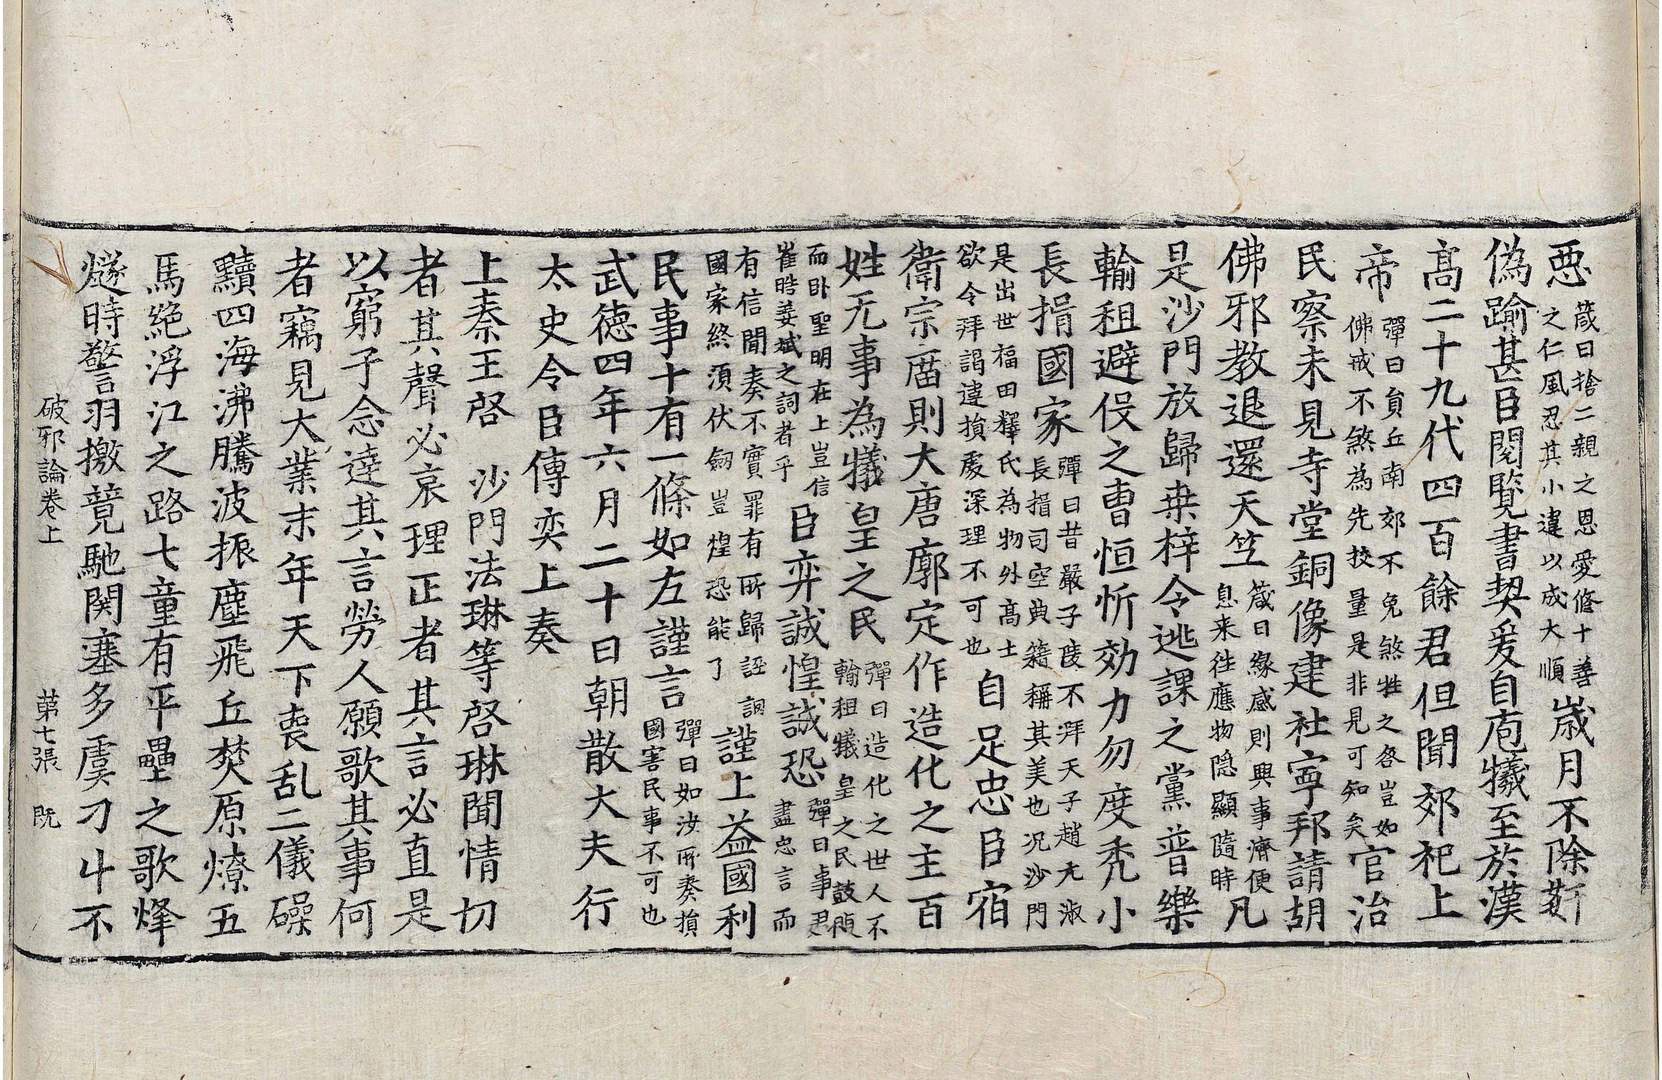 惡箴曰捨二親之恩愛修十善之仁風忍其小違以成大順歲月不除
偽踰甚臣閱覽書契爰自庖犧至於漢
高二十九代四百餘君但聞郊祀上
帝彈曰負丘南郊不免煞牲之咎豈如佛戒不煞為先挍量是非見可知矣官治
民察未見寺堂銅像建社寧邦請胡
佛邪教退還天竺箴曰緣感則興事濟便息来往應物隱顯隨時凡
是沙門放歸桒梓令逃課之黨普樂
輸租避伇之曹恒忻効力勿度禿小
長揖國家彈曰昔嚴子陵不拜天子趙元淑長揖司空典籍稱其美也况沙門
是出世福田釋氏為物外高士欲令拜謁違損處深理不可也自足忠臣宿
衛宗廟則大唐廓定作造化之主百
姓无事為犧皇之民彈曰造化之世人不輸租犧皇之民鼓腹
而卧聖明在上豈信崔晧姜斌之詞者乎臣弈誠惶誠恐彈曰事君盡忠言而
有信聞奏不實罪有所歸誣調國家終湏伏劒豈惶恐能了謹上益國利
民事十有一條如左謹言彈曰如汝所奏損國害民事不可也
武德四年六月二十日朝散大夫行
太史令臣傅奕上奏
上秦王啓　沙門法琳等啓琳聞情切
者其聲必哀理正者其言必直是
以窮子念達其言勞人願歌其事何
者竊見大業末年天下喪乱二儀磣
黷四海沸騰波振塵飛丘焚原燎五
馬絕浮江之路七童有平壘之歌烽
燧時警羽撽竟馳関塞多虞刁斗不
破邪論卷上　第七張　旣